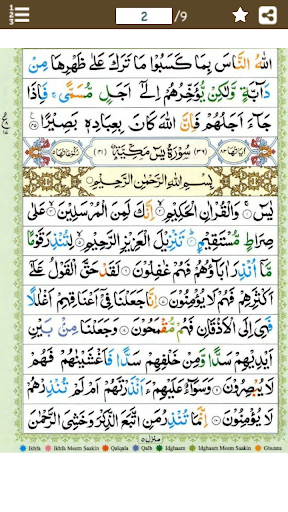 1 2 3
2
/9
اللهُ النَّاسَ بِمَا كَسَبُوْا مَا تَرَكَ عَلٰى ظَهْرِهَا مِنْ
دَآبَّةٍ وَّلٰكِنْ يُّؤَخِّرُهُمْ اِلٰٓى اَجَلٍ مُّسَمًّى ۚ فَاِذَا
جَآءَ اَجَلُهُمْ فَاِنَّ اللهَ كَانَ بِعِبَادِهٖ بَصِيْرًا ۝
اٰيَاتُهَا ۸۳ (۳۶) سُوْرَةُ يٰسٓ مَكِّيَّةٌ (۴۱) رُكُوْعَاتُهَا ۵
بِسْمِ اللهِ الرَّحْمٰنِ الرَّحِيْمِ
يٰسٓ ۝ وَالْقُرْاٰنِ الْحَكِيْمِ ۝ اِنَّكَ لَمِنَ الْمُرْسَلِيْنَ ۝ عَلٰى
صِرَاطٍ مُّسْتَقِيْمٍ ۝ تَنْزِيْلَ الْعَزِيْزِ الرَّحِيْمِ ۝ لِتُنْذِرَ قَوْمًا
مَّآ اُنْذِرَ اٰبَآؤُهُمْ فَهُمْ غٰفِلُوْنَ ۝ لَقَدْ حَقَّ الْقَوْلُ عَلٰٓى
اَكْثَرِهِمْ فَهُمْ لَا يُؤْمِنُوْنَ ۝ اِنَّا جَعَلْنَا فِيْٓ اَعْنَاقِهِمْ اَغْلٰلًا
فَهِيَ اِلَى الْاَذْقَانِ فَهُمْ مُّقْمَحُوْنَ ۝ وَجَعَلْنَا مِنْۢ بَيْنِ
اَيْدِيْهِمْ سَدًّا وَّمِنْ خَلْفِهِمْ سَدًّا فَاَغْشَيْنٰهُمْ فَهُمْ
لَا يُبْصِرُوْنَ ۝ وَسَوَآءٌ عَلَيْهِمْ ءَاَنْذَرْتَهُمْ اَمْ لَمْ تُنْذِرْهُمْ
لَا يُؤْمِنُوْنَ ۝ اِنَّمَا تُنْذِرُ مَنِ اتَّبَعَ الذِّكْرَ وَخَشِيَ الرَّحْمٰنَ
منزل ۵
Ikhfa Ikhfa Meem Saakin Qalqala Qalb Idghaam Idghaam Meem Saakin Ghunna